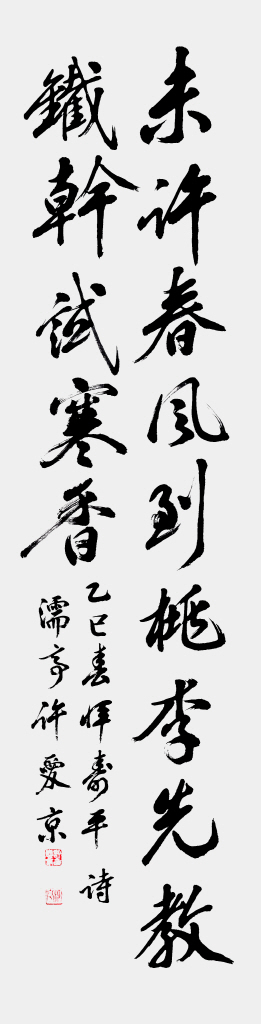 未许春风到桃李先教
鐵幹試寒香
乙巳春惲壽平詩
濡亭许愛京